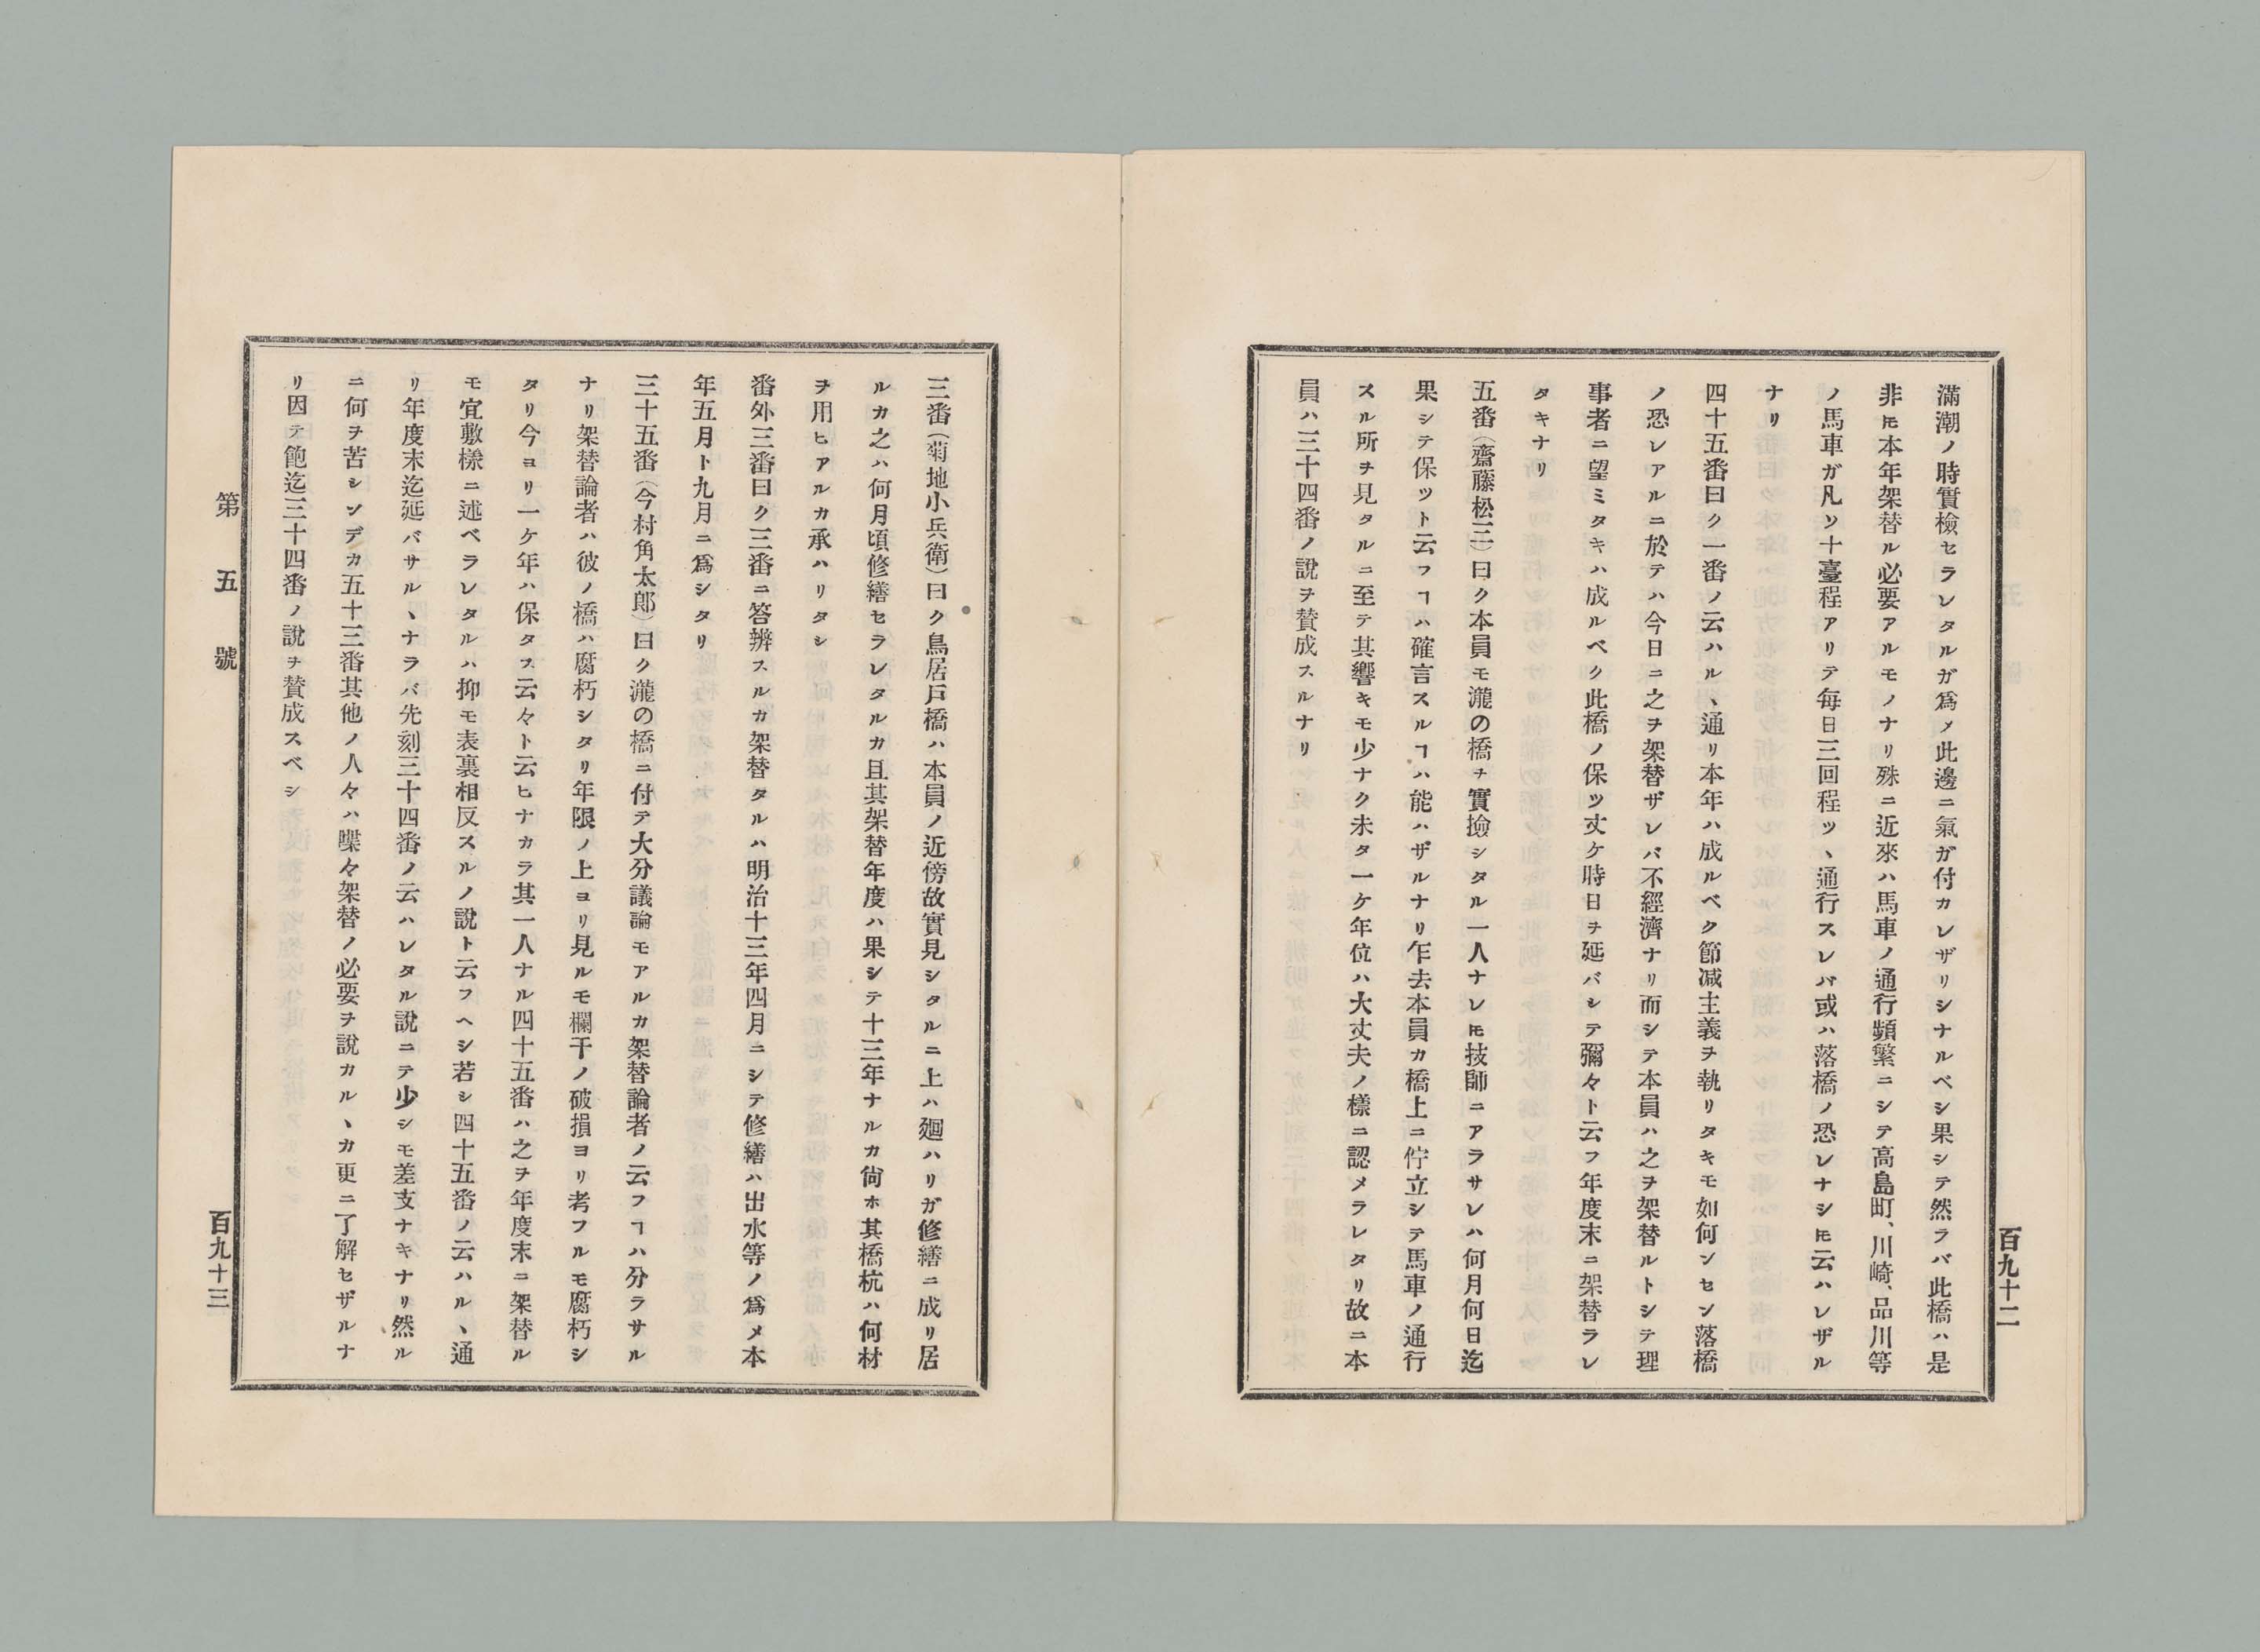 百九十二
滿潮ノ時實檢セラレタルガ爲メ此邊ニ氣ガ付カレザリシナルベシ果シテ然ラバ此橋ハ是
非𪜈本年架替ル必要アルモノナリ殊ニ近來ハ馬車ノ通行頻繁ニシテ高島町、川崎、品川等
ノ馬車ガ凡ソ十臺程アリテ毎日三回程ツヽ通行スレバ或ハ落橋ノ恐レナシ𪜈云ハレザル
ナリ
四十五番曰ク一番ノ云ハルヽ通リ本年ハ成ルベク節减主義ヲ執リタキモ如何ンセン落橋
ノ恐レアルニ於テハ今日ニ之ヲ架替ザレバ不經濟ナリ而シテ本員ハ之ヲ架替ルトシテ理
事者ニ望ミタキハ成ルベク此橋ノ保ツ丈ケ時日ヲ延バシテ彌々ト云フ年度末ニ架替ラレ
タキナリ
五番（齋藤松三）曰ク本員モ瀧の橋ヲ實撿シタル一人ナレ𪜈技師ニアラサレハ何月何日迄
果シテ保ツト云フヿハ確言スルヿハ能ハザルナリ乍去本員カ橋上ニ佇立シテ馬車ノ通行
スル所ヲ見タルニ至テ其響キモ少ナク未タ一ケ年位ハ大丈夫ノ樣ニ認メラレタリ故ニ本
員ハ三十四番ノ說ヲ賛成スルナリ
三番（菊地小兵衛）曰ク鳥居戸橋ハ本員ノ近傍故實見シタルニ上ハ廻ハリガ修繕ニ成リ居
ルカ之ハ何月頃修繕セラレタルカ且其架替年度ハ果シテ十三年ナルカ尙ホ其橋杭ハ何材
ヲ用ヒアルカ承ハリタシ
番外三番曰ク三番ニ答辨スルカ架替タルハ明治十三年四月ニシテ修繕ハ出水等ノ爲メ本
年五月ト九月ニ爲シタリ
三十五番（今村角太郎）曰ク瀧の橋ニ付テ大分議論モアルカ架替論者ノ云フヿハ分ラサル
ナリ架替論者ハ彼ノ橋ハ腐朽シタリ年限ノ上ヨリ見ルモ欄干ノ破損ヨリ考フルモ腐朽シ
タリ今ヨリ一ケ年ハ保タス云々ト云ヒナカラ其一人ナル四十五番ハ之ヲ年度末ニ架替ル
モ宜敷樣ニ述ベラレタルハ抑モ表裏相反スルノ說ト云フヘシ若シ四十五番ノ云ハルヽ通
リ年度末迄延バサルヽナラバ先刻三十四番ノ云ハレタル說ニテ少シモ差支ナキナリ然ル
ニ何ヲ苦シンデカ五十三番其他ノ人々ハ喋々架替ノ必要ヲ說カルヽカ更ニ了解セザルナ
リ因テ飽迄三十四番ノ說ヲ賛成スベシ
第五號
百九十三